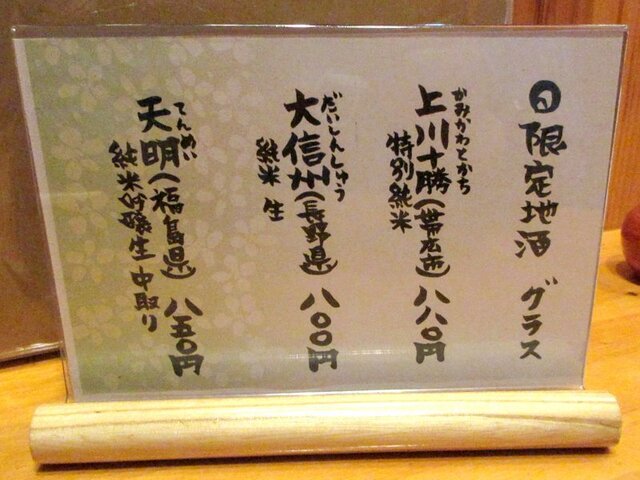 旬 限定地酒 グラス
かみかわとかち
上川十勝(帯広市) 八八〇円
特別純米
だいしんしゅう
大信州(長野県) 八〇〇円
純米 生
てんめい
天明(福島県) 八五〇円
純米吟醸生 中取り